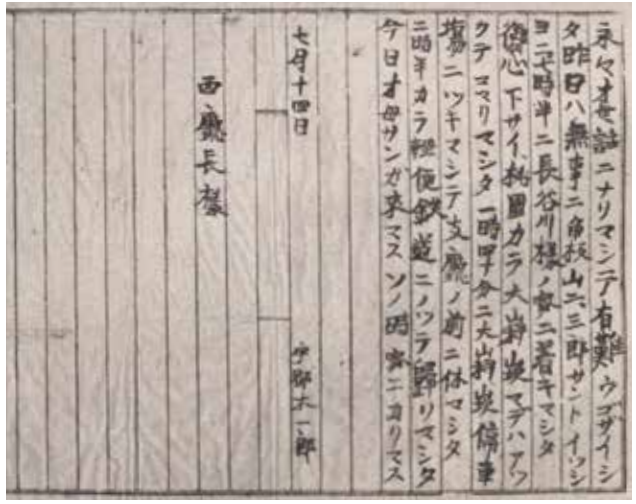 永々才世話ニナリマシテ有難ウゴザイシ
タ昨日ハ無事ニ角板山ニ、三郎サントイッシ
ヨニ七時半ニ長谷川様ノ家ニ着キマシタ
御心下サイ、桃園カラ大嵙崁マデハアツ
クテコマリマシタ一時四十分ニ大嵙崁停車
場ニツキマシテ支廳ノ前ニ休マシタ
二時半カラ軽便鉄道ニノツラ歸リマシタ
今日才母サンガ来マスソノ時家ニカリマス
七月十四日
宇都木一郎
西廳長様